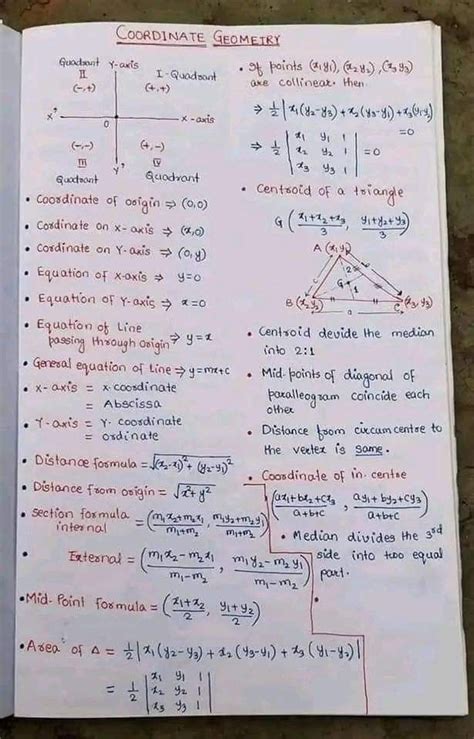 COORDINATE GEOMETRY
Quadrant Y-axis
II I-Quadrant
(-,+) (+,+)
X' X-axis
(-,-) (+,-)
III Y' IV
Quadrant Quadrant
• Coordinate of origin ⇒ (0,0)
• Cordinate on X-axis ⇒ (x,0)
• Cordinate on Y-axis ⇒ (0,y)
• Equation of X-axis ⇒ y=0
• Equation of Y-axis ⇒ x=0
• Equation of Line
passing through Origin ⇒ y=x
• General equation of Line ⇒ y=mx+c
• X-axis = x-coordinate
= Abscissa
• Y-axis = Y-coordinate
= ordinate
• Distance formula = √(x₂-x₁)²+(y₂-y₁)²
• Distance from origin = √x²+y²
• Section formula
internal = (m₁x₂+m₂x₁/m₁+m₂, m₁y₂+m₂y₁/m₁+m₂)
• External = (m₁x₂-m₂x₁/m₁-m₂, m₁y₂-m₂y₁/m₁-m₂)
• Mid-Point formula = (x₁+x₂/2, y₁+y₂/2)
• Area of Δ = 1/2|x₁(y₂-y₃)+x₂(y₃-y₁)+x₃(y₁-y₂)|
= 1/2 | x₁ y₁ 1 |
| x₂ y₂ 1 |
| x₃ y₃ 1 |
• If points (x₁y₁), (x₂y₂), (x₃y₃)
are collinear then
⇒ 1/2|x₁(y₂-y₃)+x₂(y₃-y₁)+x₃(y₁-y₂)|
=0
⇒ 1/2 | x₁ y₁ 1 |
| x₂ y₂ 1 | =0
| x₃ y₃ 1 |
• Centroid of a triangle
G(x₁+x₂+x₃/3, y₁+y₂+y₃/3)
A (x₁y₁)
c 2 b
G 1
B(x₂y₂) a C(x₃y₃)
• Centroid devide the median
into 2:1
• Mid-points of diagonal of
paralleogram coincide each
other
• Distance from circumcentre to
the vertex is same.
• Coordinate of in-centre
(ax₁+bx₂+cx₃/a+b+c, ay₁+by₂+cy₃/a+b+c)
• Median divides the 3rd
side into two equal
part.